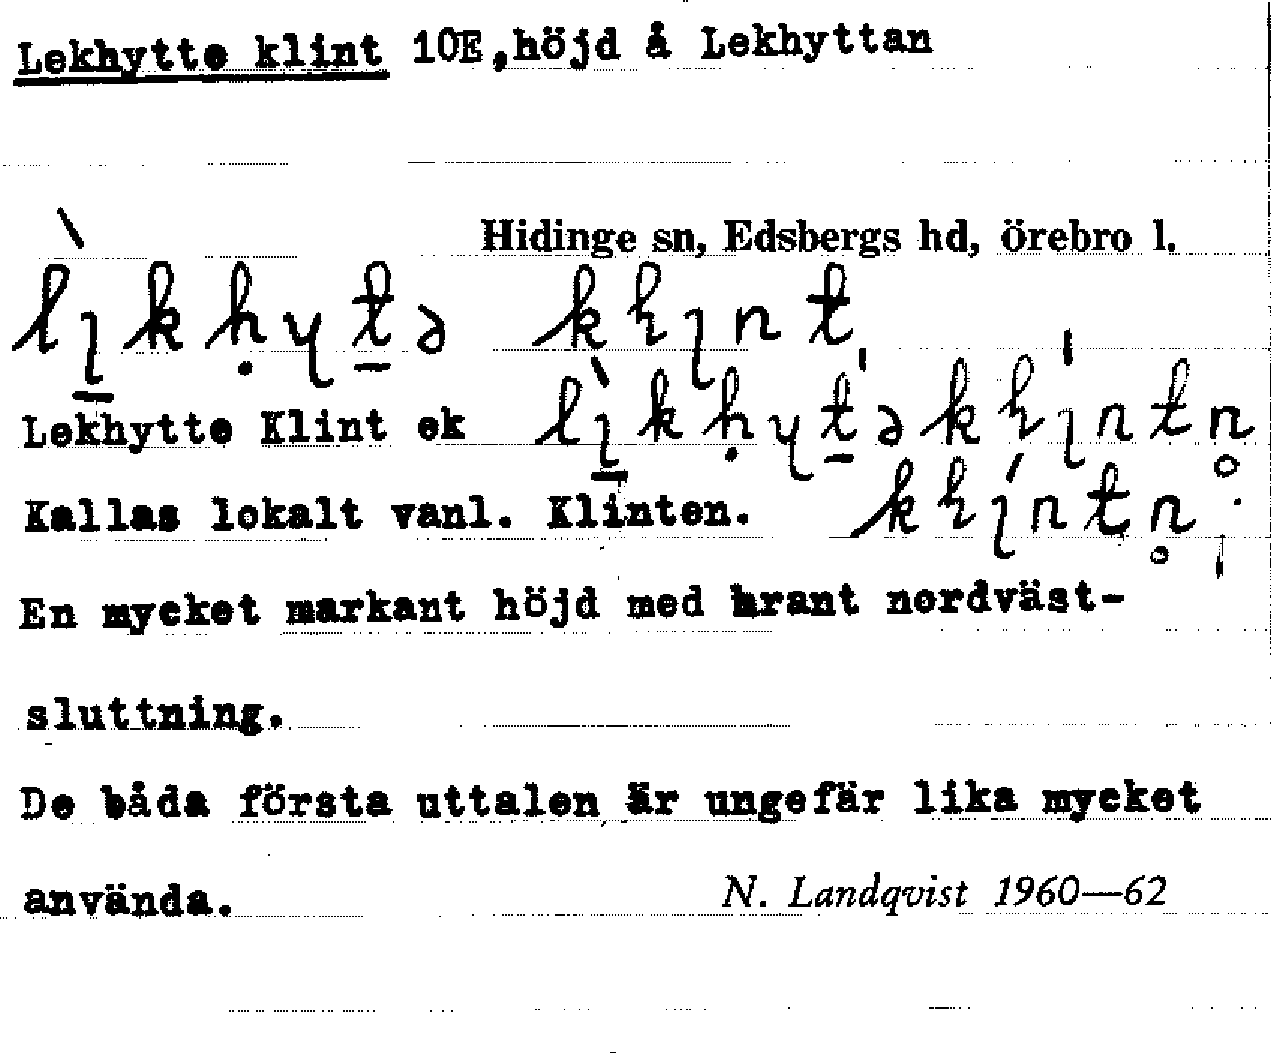 Lekhytte klint 10E, höjd å Lekhyttan
Hidinge sn, Edsbergs hd, örebro l.
Lekhytte Klint ek
Kallas lokalt vanl. Klinten.
En mycket markant höjd med brant nordväst-
sluttning.
De båda första uttalen är ungefär lika mycket
använda.
N. Landqvist 1960—62